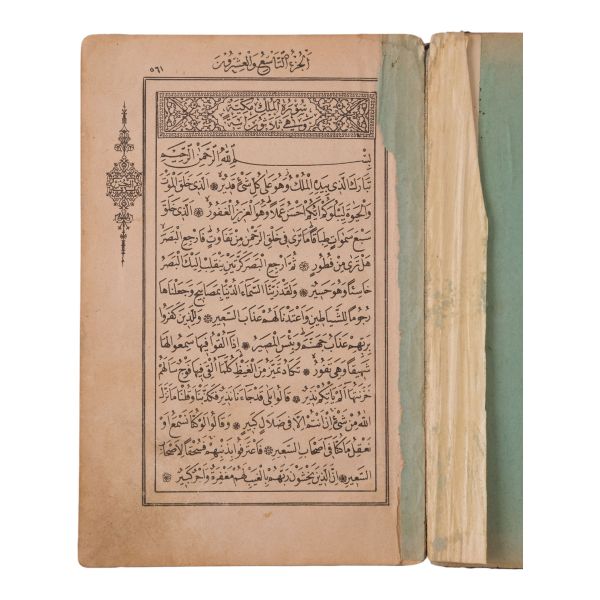 الجزء التاسع والعشرون
٥٦١
سورة الملك مكية
وهي ثلاثون آية
بسم الله الرحمن الرحيم
تبارك الذي بيده الملك وهو على كل شئ قدير الذي خلق الموت
والحيوة ليبلوكم ايكم احسن عملا وهو العزيز الغفور الذي خلق
سبع سموات طباقا ما ترى في خلق الرحمن من تفاوت فارجع البصر
هل ترى من فطور ثم ارجع البصر كرتين ينقلب اليك البصر
خاسئا وهو حسير ولقد زينا السماء الدنيا بمصابيح وجعلناها
رجوما للشياطين واعتدنا لهم عذاب السعير وللذين كفروا
بربهم عذاب جهنم وبئس المصير اذا القوا فيها سمعوا لها
شهيقا وهي تفور تكاد تميز من الغيظ كلما القي فيها فوج سالهم
خزنتها الم ياتكم نذير قالوا بلى قد جاءنا نذير فكذبنا وقلنا ما نزل
الله من شئ ان انتم الا في ضلال كبير وقالوا لو كنا نسمع او
نعقل ما كنا في اصحاب السعير فاعترفوا بذنبهم فسحقا لاصحاب
السعير ان الذين يخشون ربهم بالغيب لهم مغفرة واجر كبير